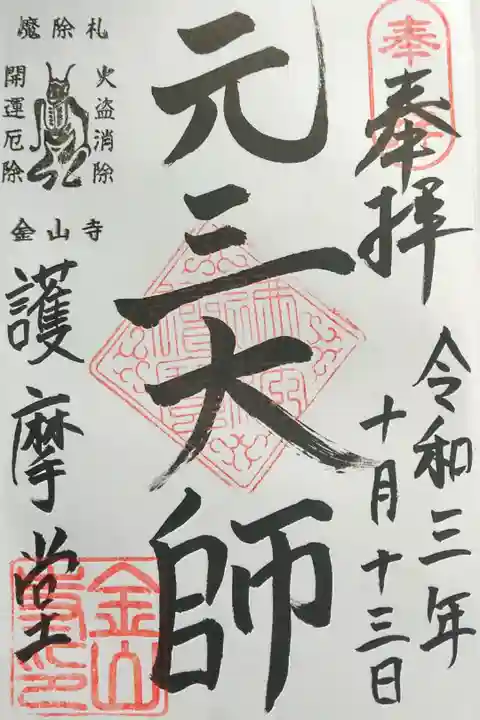 奉拝
令和三年
十月十三日
元三大師
魔除札
火盗消除
開運厄除
金山寺
護摩堂
奉
金山寺印